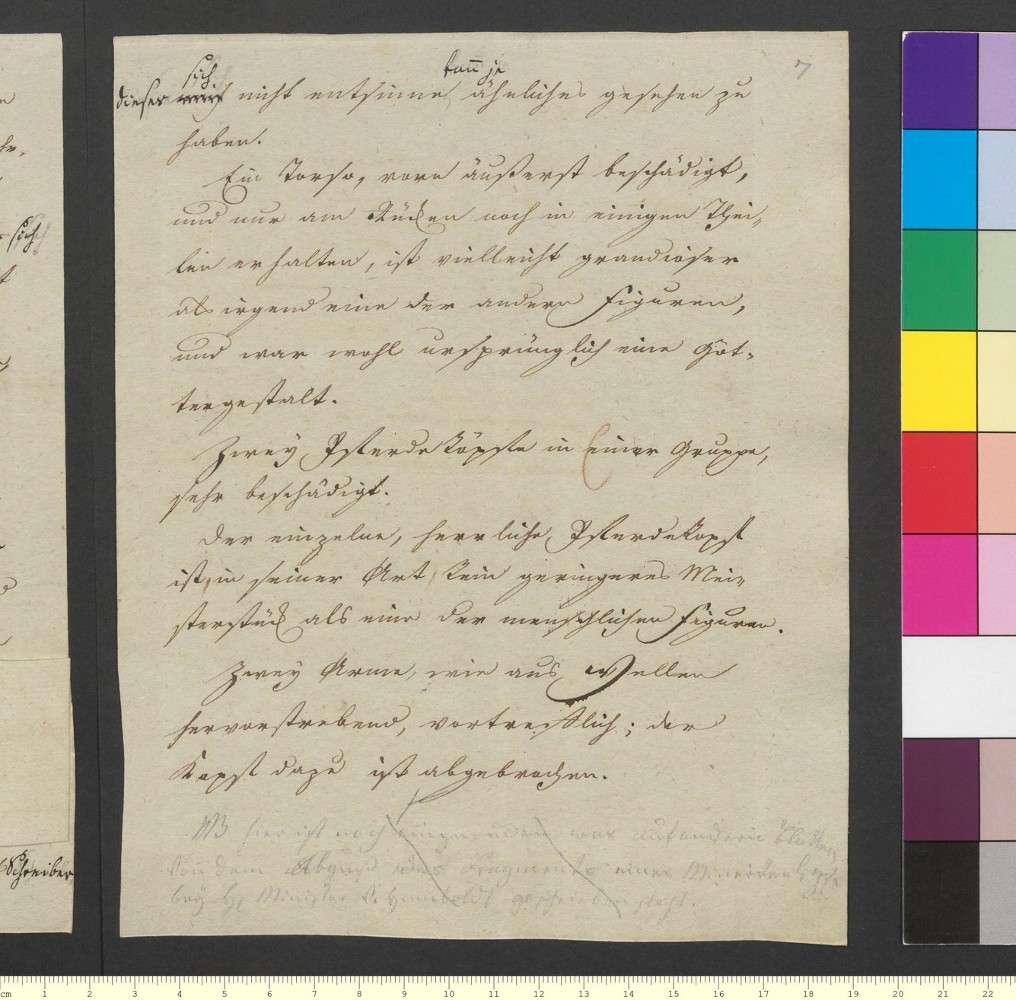 7
sich kann je
dieser nicht entsinne, ähnliches gesehen zu
haben.
Ein Torso, vorn äußerst beschädigt,
und nur am Rücken noch in einigen Thei-
len erhalten, ist vielleicht grandioser
als irgend eine der andern Figuren,
und war wohl ursprünglich eine Göt-
tergestalt.
Zwey Pferdeköpfe in Einer Gruppe,
sehr beschädigt.
Der einzelne, herrliche Pferdekopf
ist, in seiner Art, kein geringeres Mei-
sterstück als eine der menschlichen Figuren.
Zwey Arme, wie aus Wellen
hervorstrebend, vortrefflich; der
Kopf dazu ist abgebrochen.
NB hier ist noch einzurücken was auf anderm
von dem Abguß des Fragments einer Minerven
bey H. Minister v. Humboldt geschrieben steht.
sich
Schreiber
cm 1 2 3 4 5 6 7 8 9 10 11 12 13 14 15 16 17 18 19 20 21 22